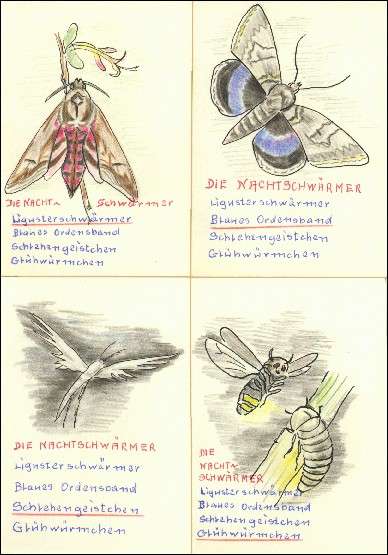 DIE NACHT~ Schwärmer
Ligusterschwärmer
Blaues Ordensband
Schlehengeistchen
Glühwürmchen
DIE NACHTSCHWÄRMER
Ligusterschwärmer
Blaues Ordensband
Schlehengeistchen
Glühwürmchen
DIE NACHTSCHWÄRMER
Ligusterschwärmer
Blaues Ordensband
Schlehengeistchen
Glühwürmchen
DIE
NACHT~
SCHWÄRMER
Ligusterschwärmer
Blaues Ordensband
Schlehengeistchen
Glühwürmchen